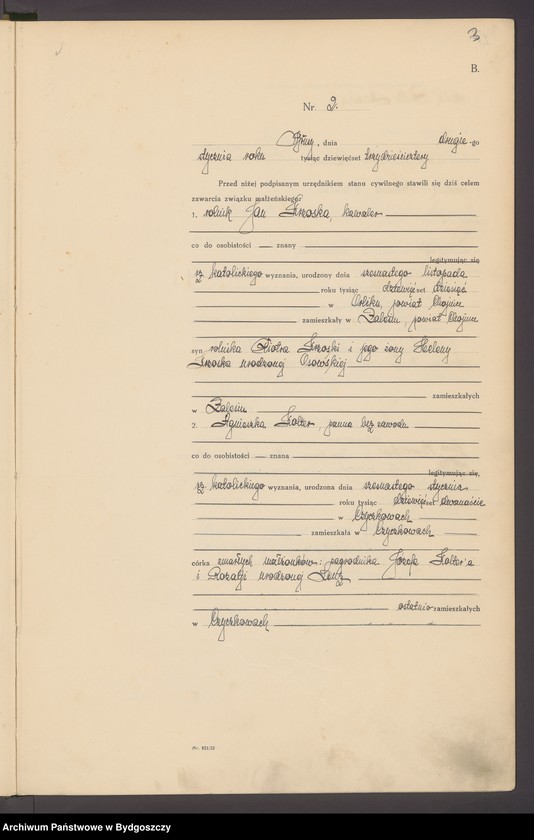 3
B.
Nr. 2.
, dnia drugie-go
stycznia roku tysiąc dziewięćset trzydzieścicztery
Przed niżej podpisanym urzędnikiem stanu cywilnego stawili się dziś celem
zawarcia związku małżeńskiego:
1. rolnik Jan Szroska, kawaler
co do osobistości — znany
legitymując się
rz. katolickiego wyznania, urodzony dnia szesnastego listopada
roku tysiąc dziewięćset dziesięć
w Orliku, powiat Chojnice
zamieszkały w Zalesiu, powiat Chojnice
syn rolnika Piotra Szroski i jego żony Heleny
Szroska urodzonej Ossowskiej
zamieszkałych
w Zalesiu
2. Agnieszka Folter, panna bez zawodu
co do osobistości — znana
legitymując się,
rz. katolickiego wyznania, urodzona dnia szesnastego stycznia
roku tysiąc dziewięćset dwanaście
w Czyczkowach
zamieszkała w Czyczkowach
córka zmarłych małżonków: zagrodnika Józefa Folter'a
i Rozalji urodzonej
ostatnio zamieszkałych
w Czyczkowach
Nr. 821/32
Archiwum Państwowe w Bydgoszczy